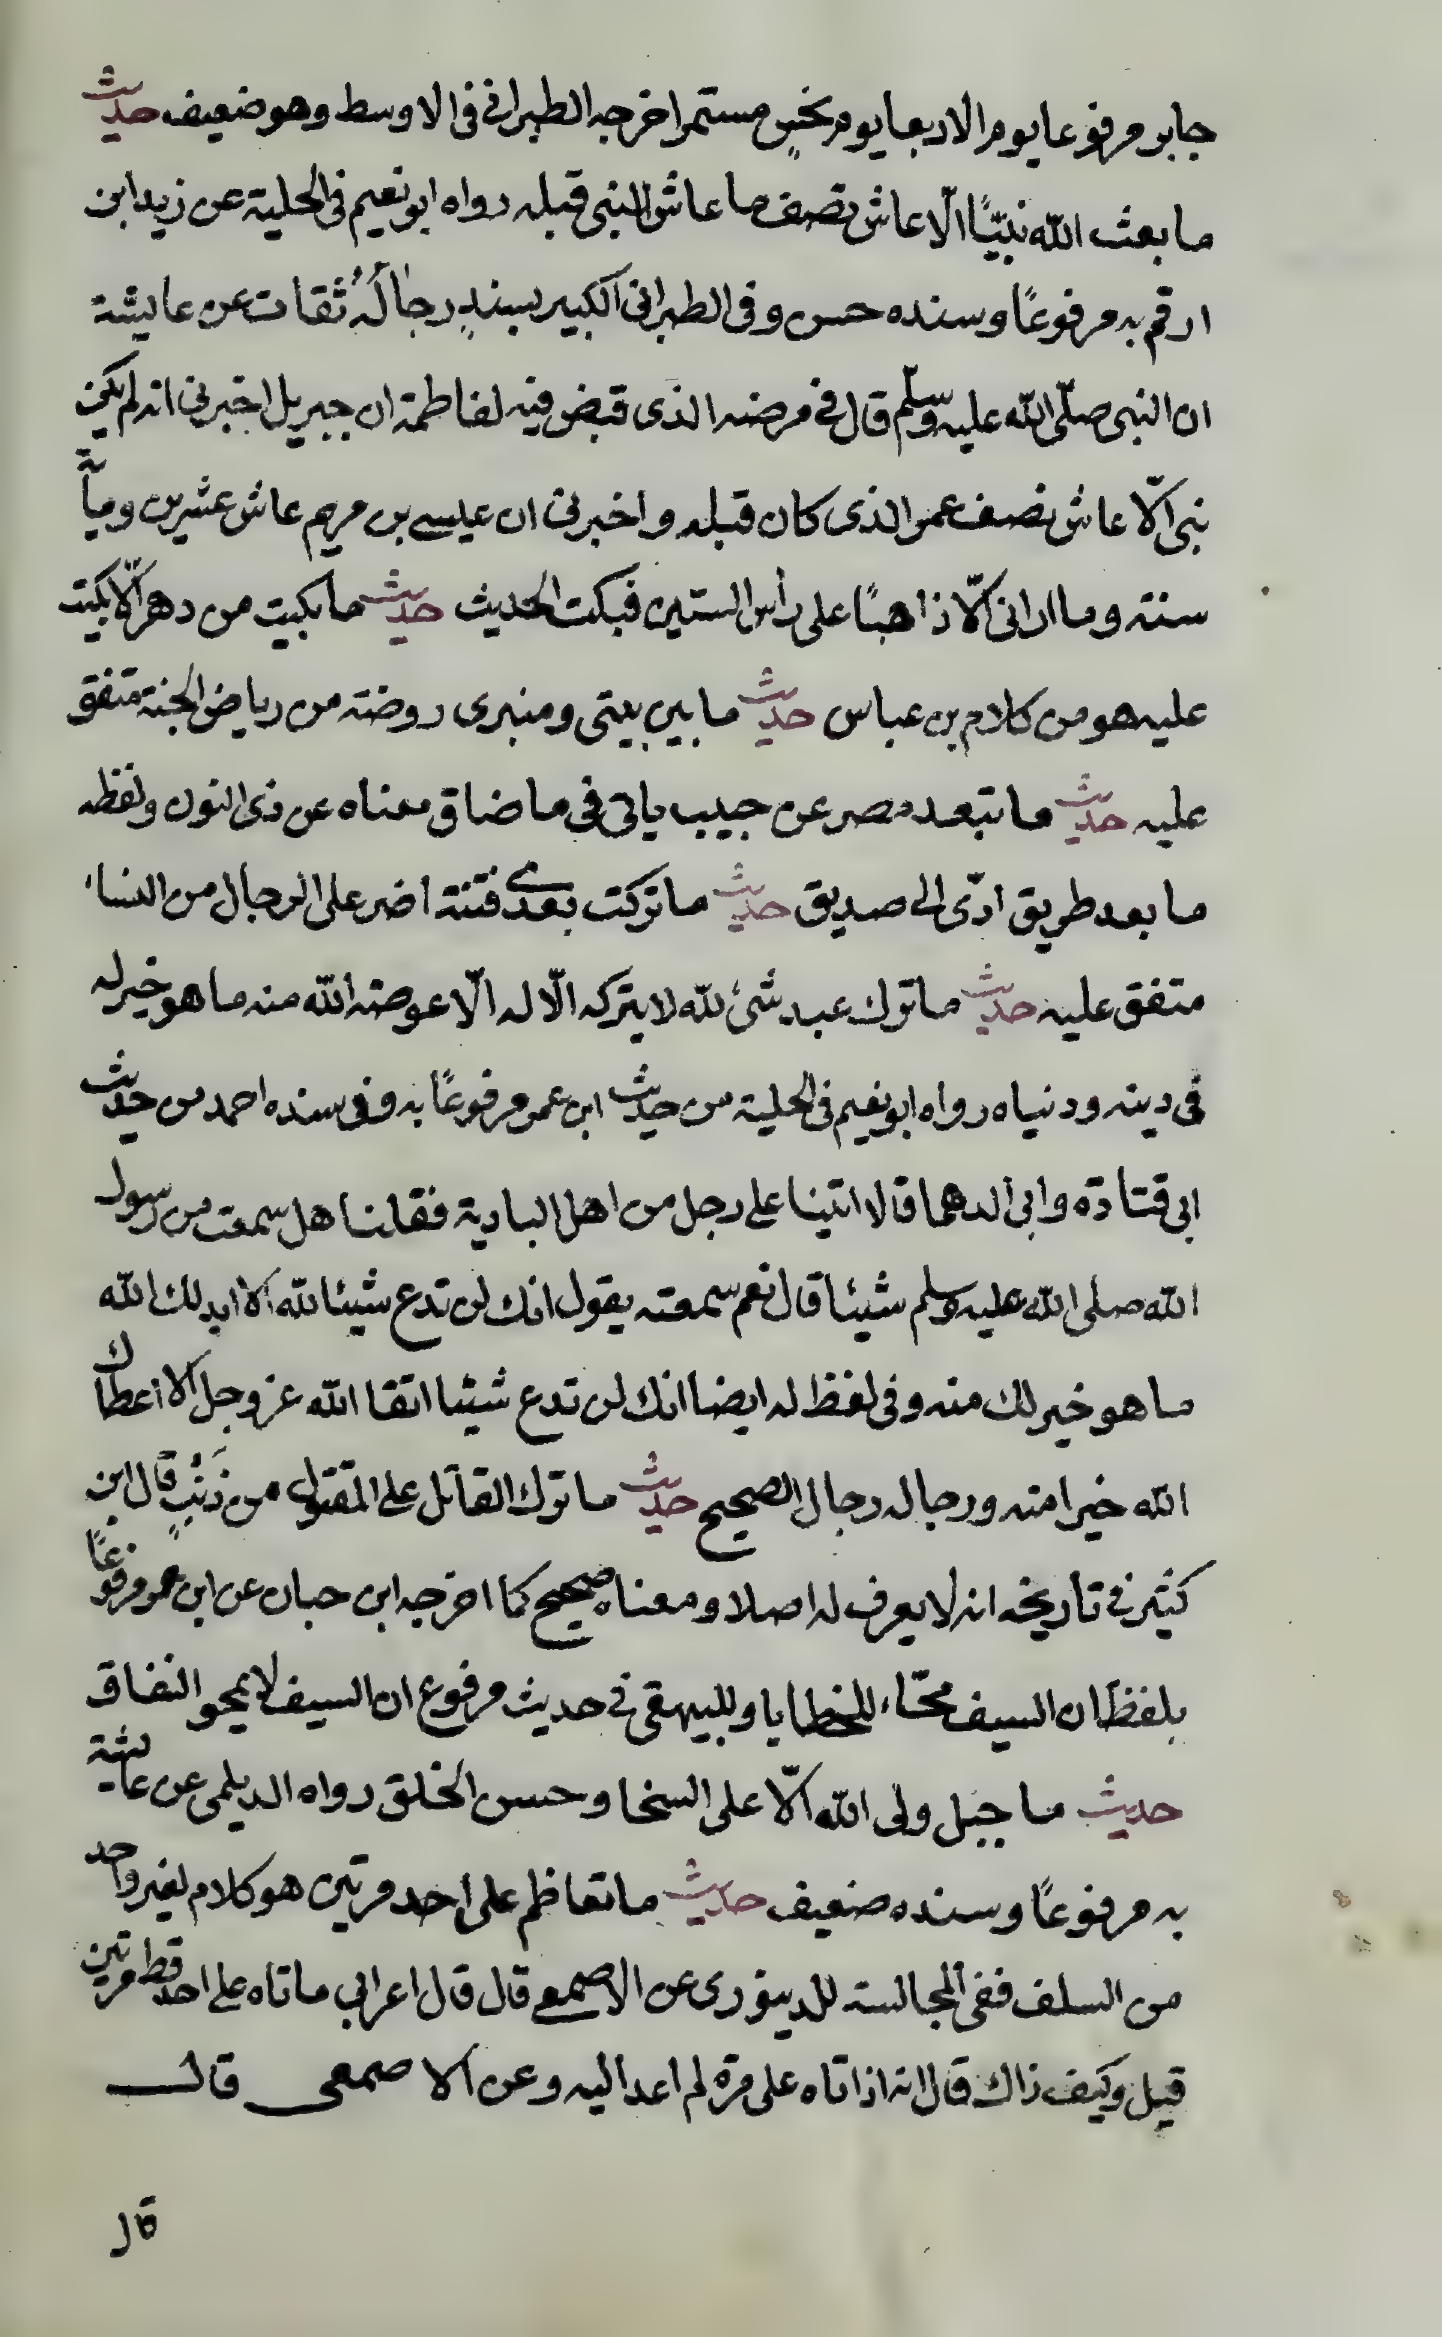 جابر مرفوعا يوم الاربعا يوم نحس مستمر اخرجه الطبراني في الاوسط وهو ضعيف حديث
ما بعث الله نبيًّا الّا عاش نصف ما عاش النبي قبله رواه ابو نعيم في الحلية عن زيد ابن
ارقم به مرفوعًا وسنده حسن وفي الطبراني الكبير بسندٍ رجالُهُ ثقات عن عايشة
ان النبي صلّى الله عليه وسلّم قال في مرضه الذي قبض فيه لفاطمة ان جبريل اخبرني انه لم يكن
نبي الّا عاش نصف عمر الذي كان قبله واخبرني ان عيسى بن مريم عاش عشرين ومأية
سنة وما اراني الّا ذاهبًا على رأس الستين فبكت الحديث حديث ما بكيت من دهر الّا بكيت
عليه هو من كلام بن عباس حديث ما بين بيتي ومنبري روضة من رياض الجنة متفق
عليه حديث ما تبعد مصر عن حبيب ياتي في ما ضاق معناه عن ذي النون ولفظه
ما بعد طريق ادّى الى صديق حديث ما تركت بعدي فتنة اضر على الرجال من النساء
متفق عليه حديث ما ترك عبد شئ لله لا يتركه الّا له الّا عوضه الله منه ما هو خير له
في دينه ودنياه رواه ابو نعيم في الحلية من حديث ابن عمر مرفوعًا به وفي سنده احمد من حديث
ابي قتادة وابي الدهما قالا اتينا على رجل من اهل البادية فقلنا هل سمعت من رسول
الله صلى الله عليه وسلم شيئا قال نعم سمعته يقول انك لن تدع شيئا لله الا ابدلك الله
ما هو خير لك منه وفي لفظ له ايضا انك لن تدع شيئا اتقا الله عز وجل الا اعطاك
الله خيرا منه ورجاله رجال الصحيح حديث ما ترك القاتل على المقتول من ذَنْبٍ قال ابن
كثير في تأريخه انه لا يعرف له اصلا ومعناه صحيح كما اخرجه ابن حبان عن ابن عمر مرفوعًا
بلفظ ان السيف محّاء للخطايا وللبيهقي في حديث مرفوع ان السيف لا يمحو النفاق
حديث ما جبل ولي الله الّا على السخا وحسن الخلق رواه الديلمي عن عائشة
به مرفوعًا وسنده ضعيف حديث ما تعاظم على احد مرتين هو كلام لغير واحد
من السلف ففي المجالسة للدينوري عن الاصمعي قال قال اعرابي ما تاه على احد قط مرتين
قيل وكيف ذاك قال انه اذا تاه على مرة لم اعد اليه وعن الاصمعي قال
قال